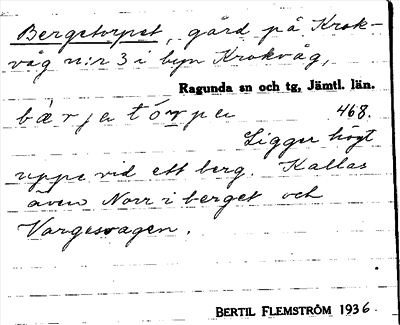 Bergstorpet, gård på Krok-
våg n:r 3 i byn Krokvåg,
Ragunda sn och tg, Jämtl. län.
bæ̀rjatórpe 468.
Ligger högt
uppe vid ett berg. Kallas
även Norr i berget och
Vargesvagen.
BERTIL FLEMSTRÖM 1936.